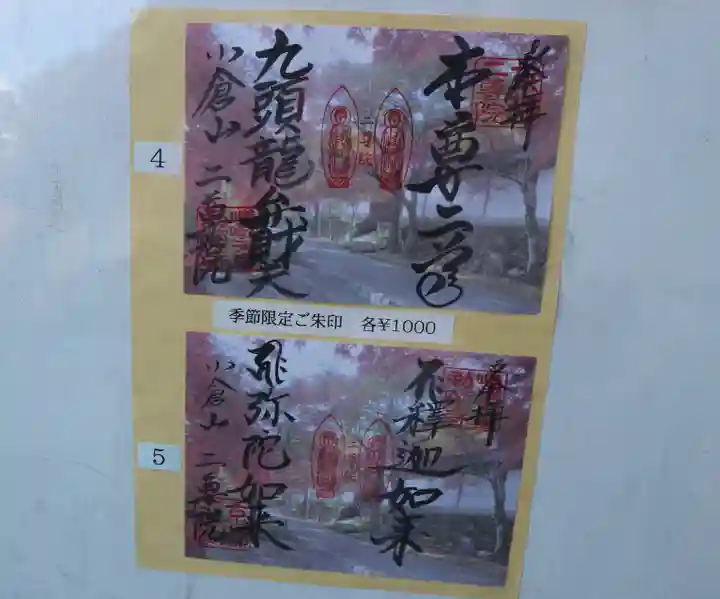 4
奉拝
本尊二尊
二尊院
九頭龍弁財天
小倉山 二尊院
季節限定ご朱印 各¥1000
5
奉拝
釋迦如来
弥陀如来
小倉山 二尊院